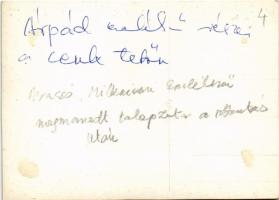 Árpád emlékmű részei
4
a cenk tetőn
Brassó, Millenium Emlékmű
megmaradt talapzata a robbantás
után